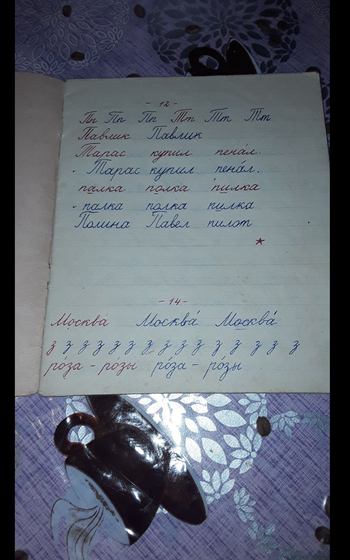 - 12 -
Пп Пп Пп Тт Тт Тт
Павлик Павлик
Тарас купил пенал.
Тарас купил пена́л.
палка полка пилка
палка полка пилка
Полина Павел пилот
- 14 -
Москва Москва́ Москва́
з з з з з з з з з з з з з з з
ро́за - ро́зы ро́за - ро́зы